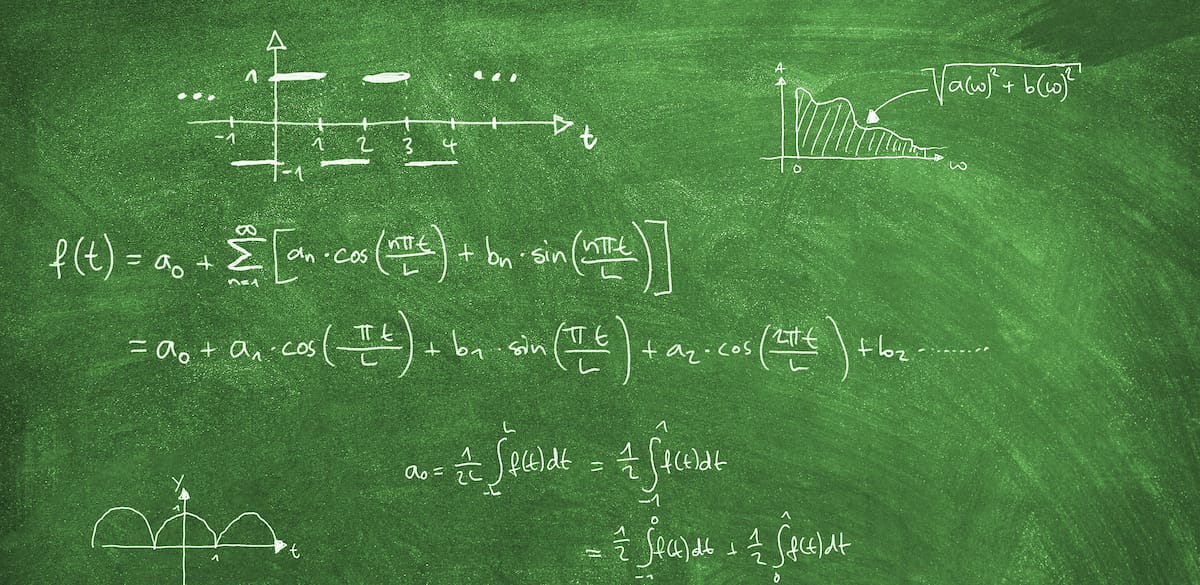 1 ...
... t
-1 1 2 3 4
-1
A √(a(ω)² + b(ω)²)
0 ω
f(t) = a₀ + ∑ₙ₌₁^∞ [aₙ · cos (nπt/L) + bₙ · sin (nπt/L)]
= a₀ + a₁ · cos (πt/L) + b₁ · sin (πt/L) + a₂ · cos (2πt/L) + b₂ ·........
a₀ = 1/2L ∫₋L^L f(t)dt = 1/2 ∫₋₁^1 f(t)dt
= 1/2 ∫₋₁^0 f(t)dt + 1/2 ∫₀^1 f(t)dt
y
1
1 t